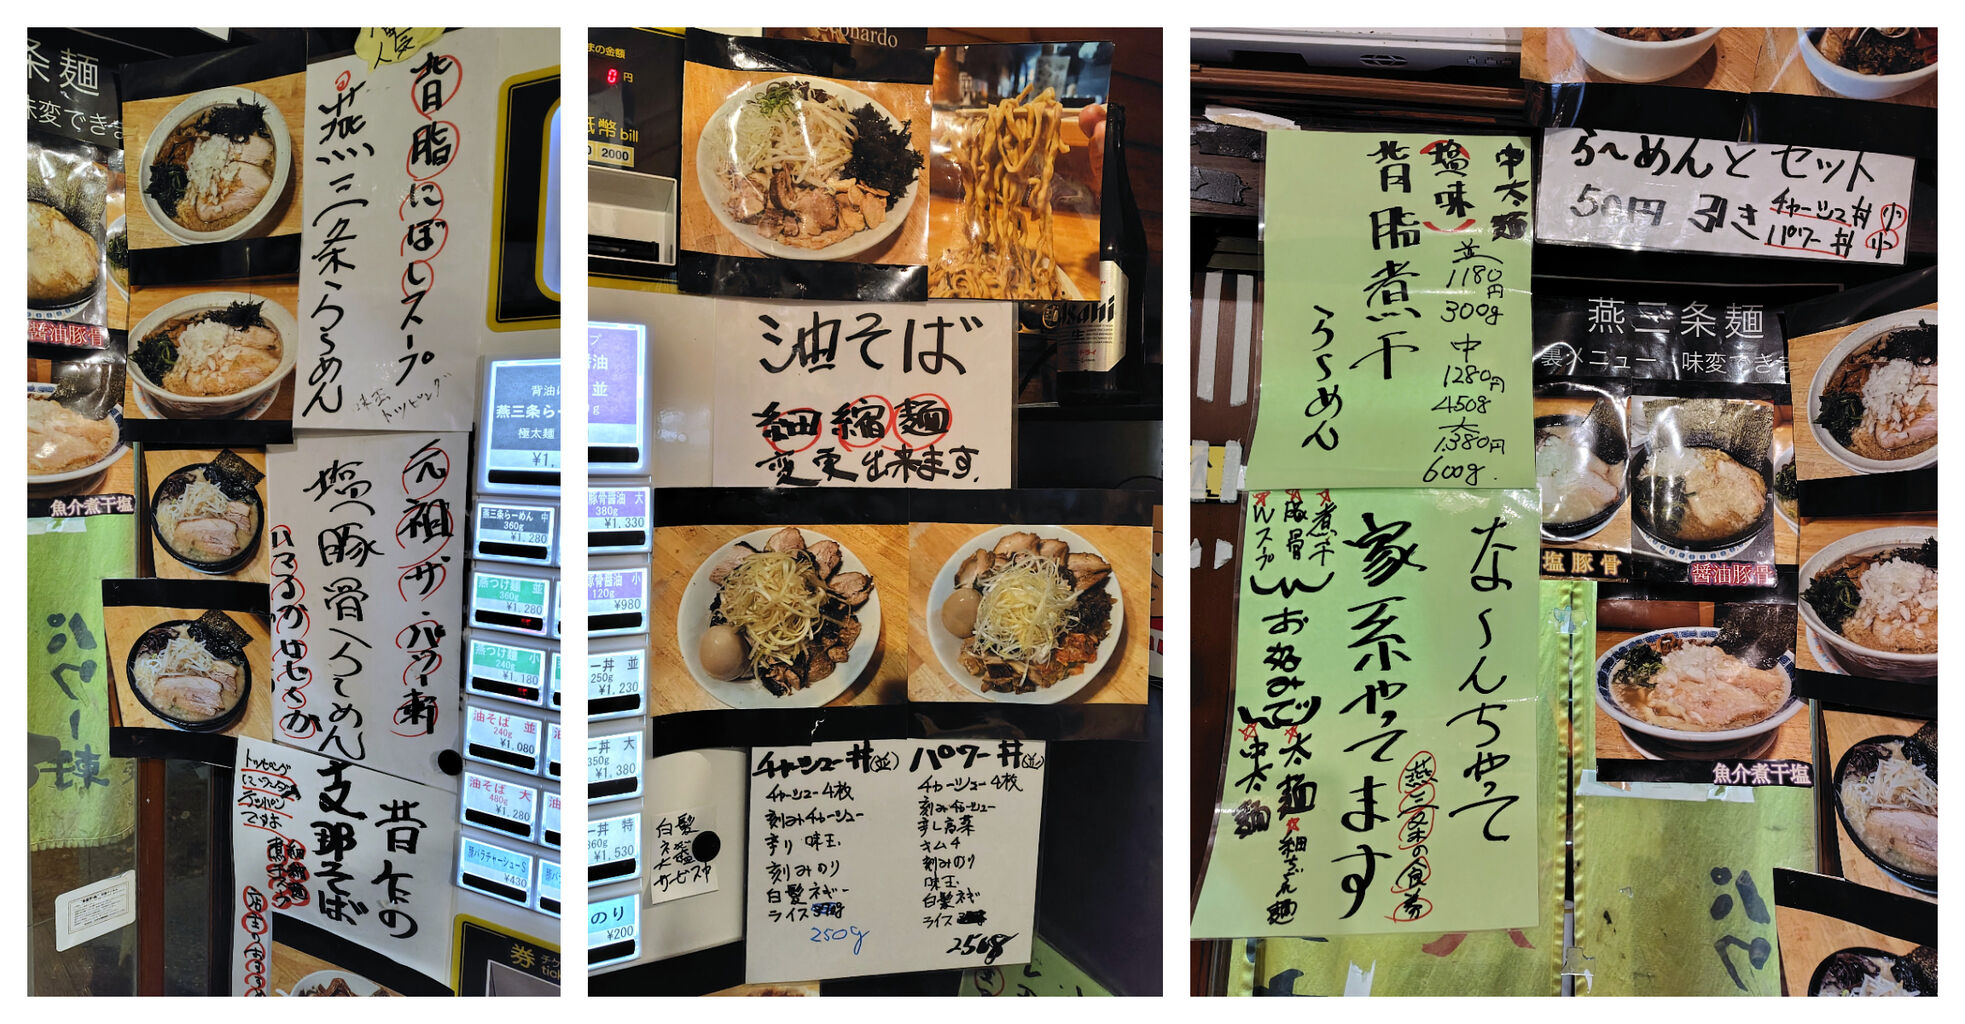 条麺
味変できま
醤油豚骨
魚介煮干塩
パワー軒
背脂にぼしスープ
燕三条らーめん
味玉
トッピング
元祖ザ・パワー軒
塩豚骨らーめん
ハマるかはせるか
昔ながらの
支那そば
トッピング
ですよ
燕三条らーめん 中
360g
¥1.280
燕つけ麺 並
360g
¥1.280
燕つけ麺 小
240g
¥1.180
油そば 並
240g
¥1.080
油そば 大
480g
¥1.280
豚バラチャーシューS
¥430
極太麺
券
まの金額
0 円
紙幣 bill
2000
onardo
Asahi
油そば
細縮麺
変更出来ます.
豚骨醤油 大
380g
¥1.330
豚骨醤油 小
120g
¥980
ー丼 並
250g
¥1.230
ー丼 大
350g
¥1.380
ー丼 特
¥1.530
のり
¥200
白髪
ネギ
大盛
サービス中
チャーシュー丼(並)
チャーシュー4枚
刻みチャーシュー
味玉
刻みのり
白髪ネギー
ライス
250g
パワー丼(並)
チャーシュー4枚
刻みチャーシュー
辛し高菜
キムチ
刻みのり
味玉
白髪ネギ
ライス
250g
中太麺
塩味
背脂煮干
らーめん
並
1180円
300g
中
1280円
450g
大
1,380円
600g.
らーめんとセット
50円引き
チャーシュー丼 小
パワー丼 小
燕三条麺
裏メニュー 味変できま
塩豚骨
醤油豚骨
魚介煮干塩
なーんちゃって
家系やってます
燕三条の食券
煮干
豚骨
お好みで
太麺
中太麺
細ちぢれ麺
パワ